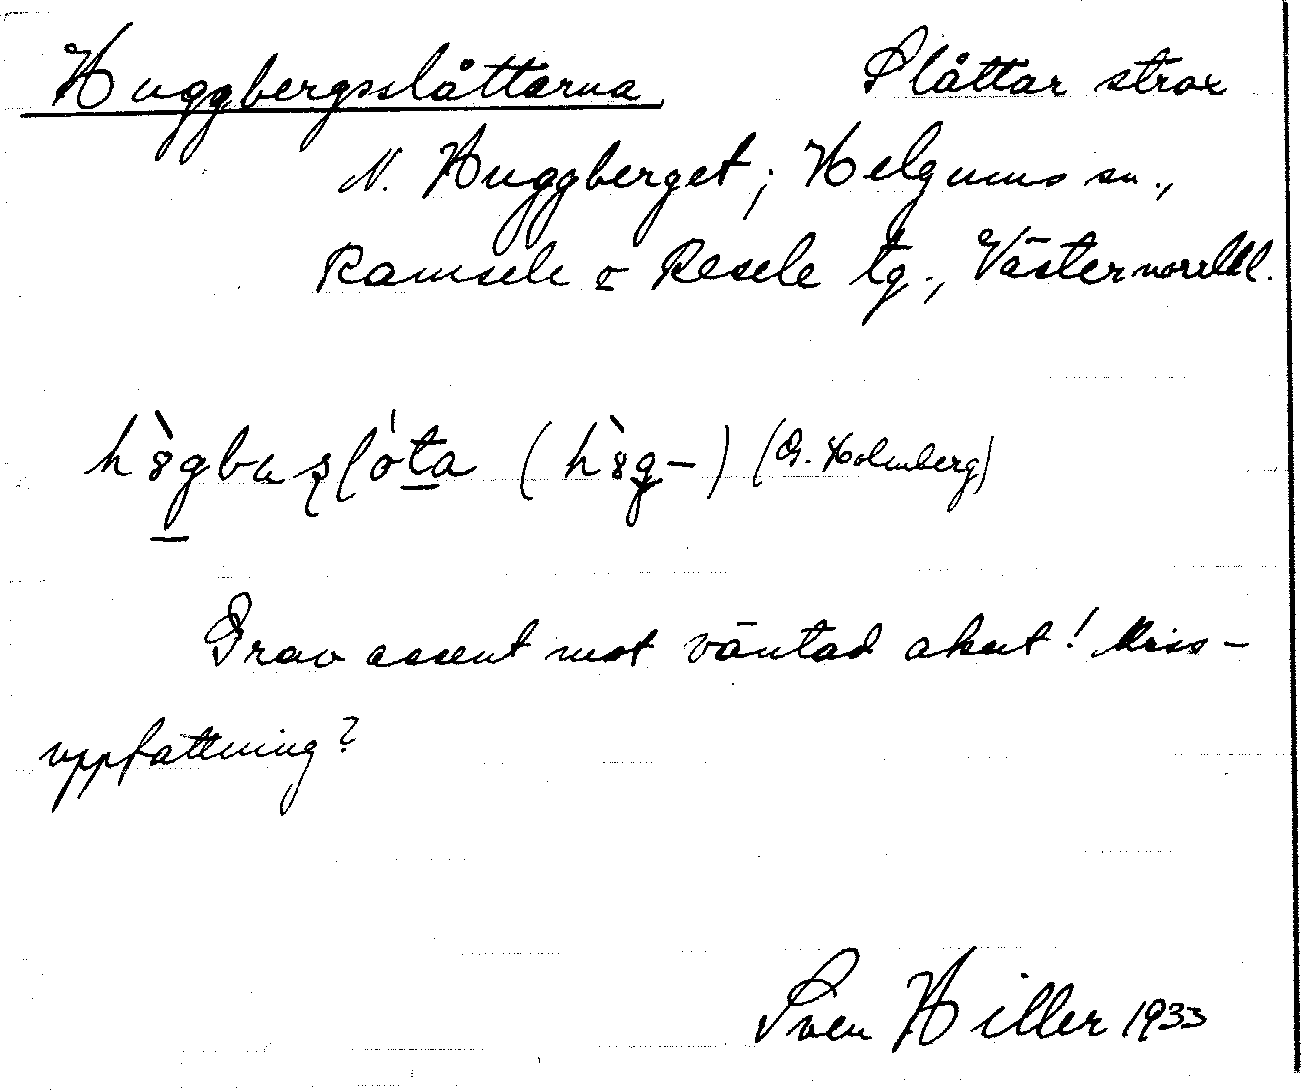 Huggbergsslåttarna Slåttar strax
N. Huggberget; Helgums sn.,
Ramsele o Resele tg., Västernorrl.l.
(G. Holmberg)
Grav accent mot väntad akut! Miss-
uppfattning?
Sven Hiller 1933